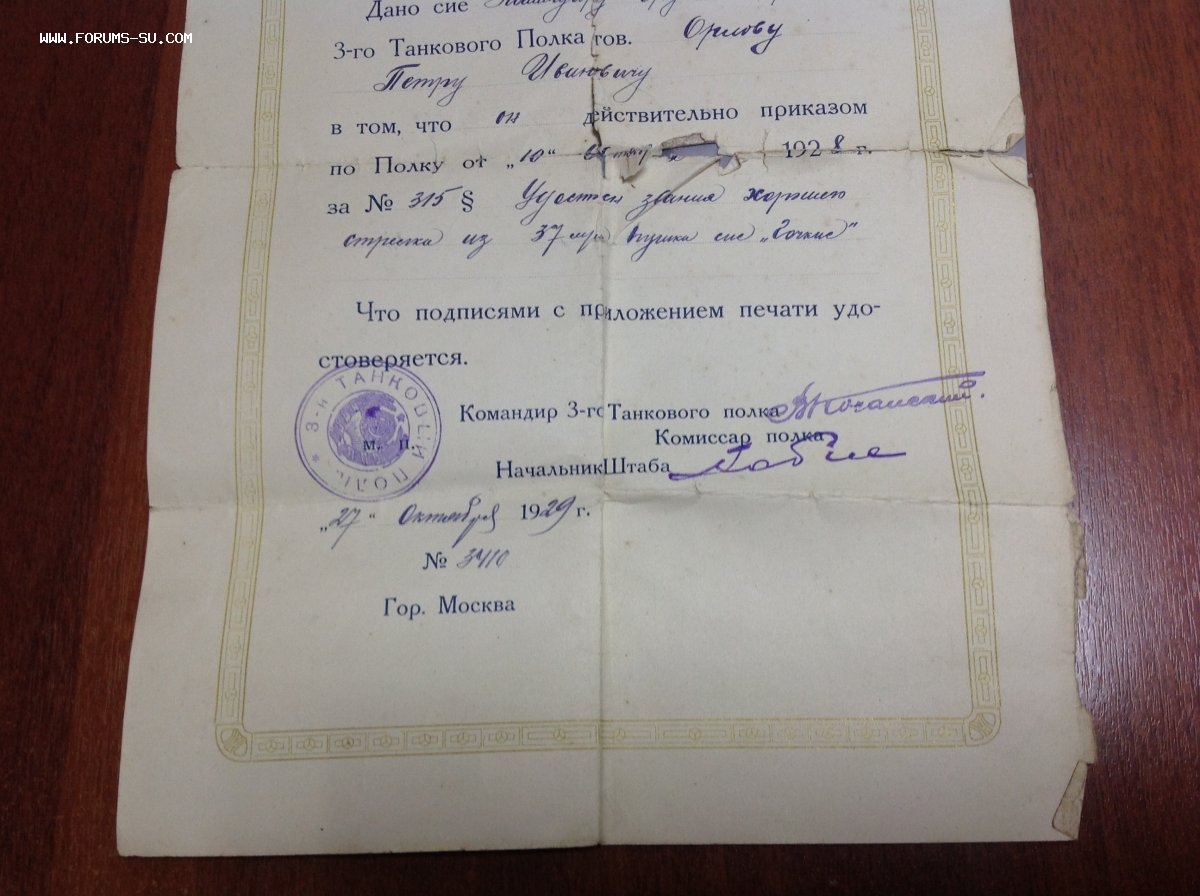 www.forums-su.com
Дано сие Командиру
3-го Танкового Полка тов. Орлову
Петру Ивановичу
в том, что он действительно приказом
по Полку от „10“ 1928 г.
за № 315 § Удостоен звания хорошего
стрелка из 37 м/м пушки сис „Гочкис“
Что подписями с приложением печати удо-
стоверяется.
3-й ТАНКОВЫЙ ПОЛК
Командир 3-го Танкового полка
м. п.
Комиссар полка
Начальник Штаба
„27“ Октября 1929 г.
№ 3410
Гор. Москва